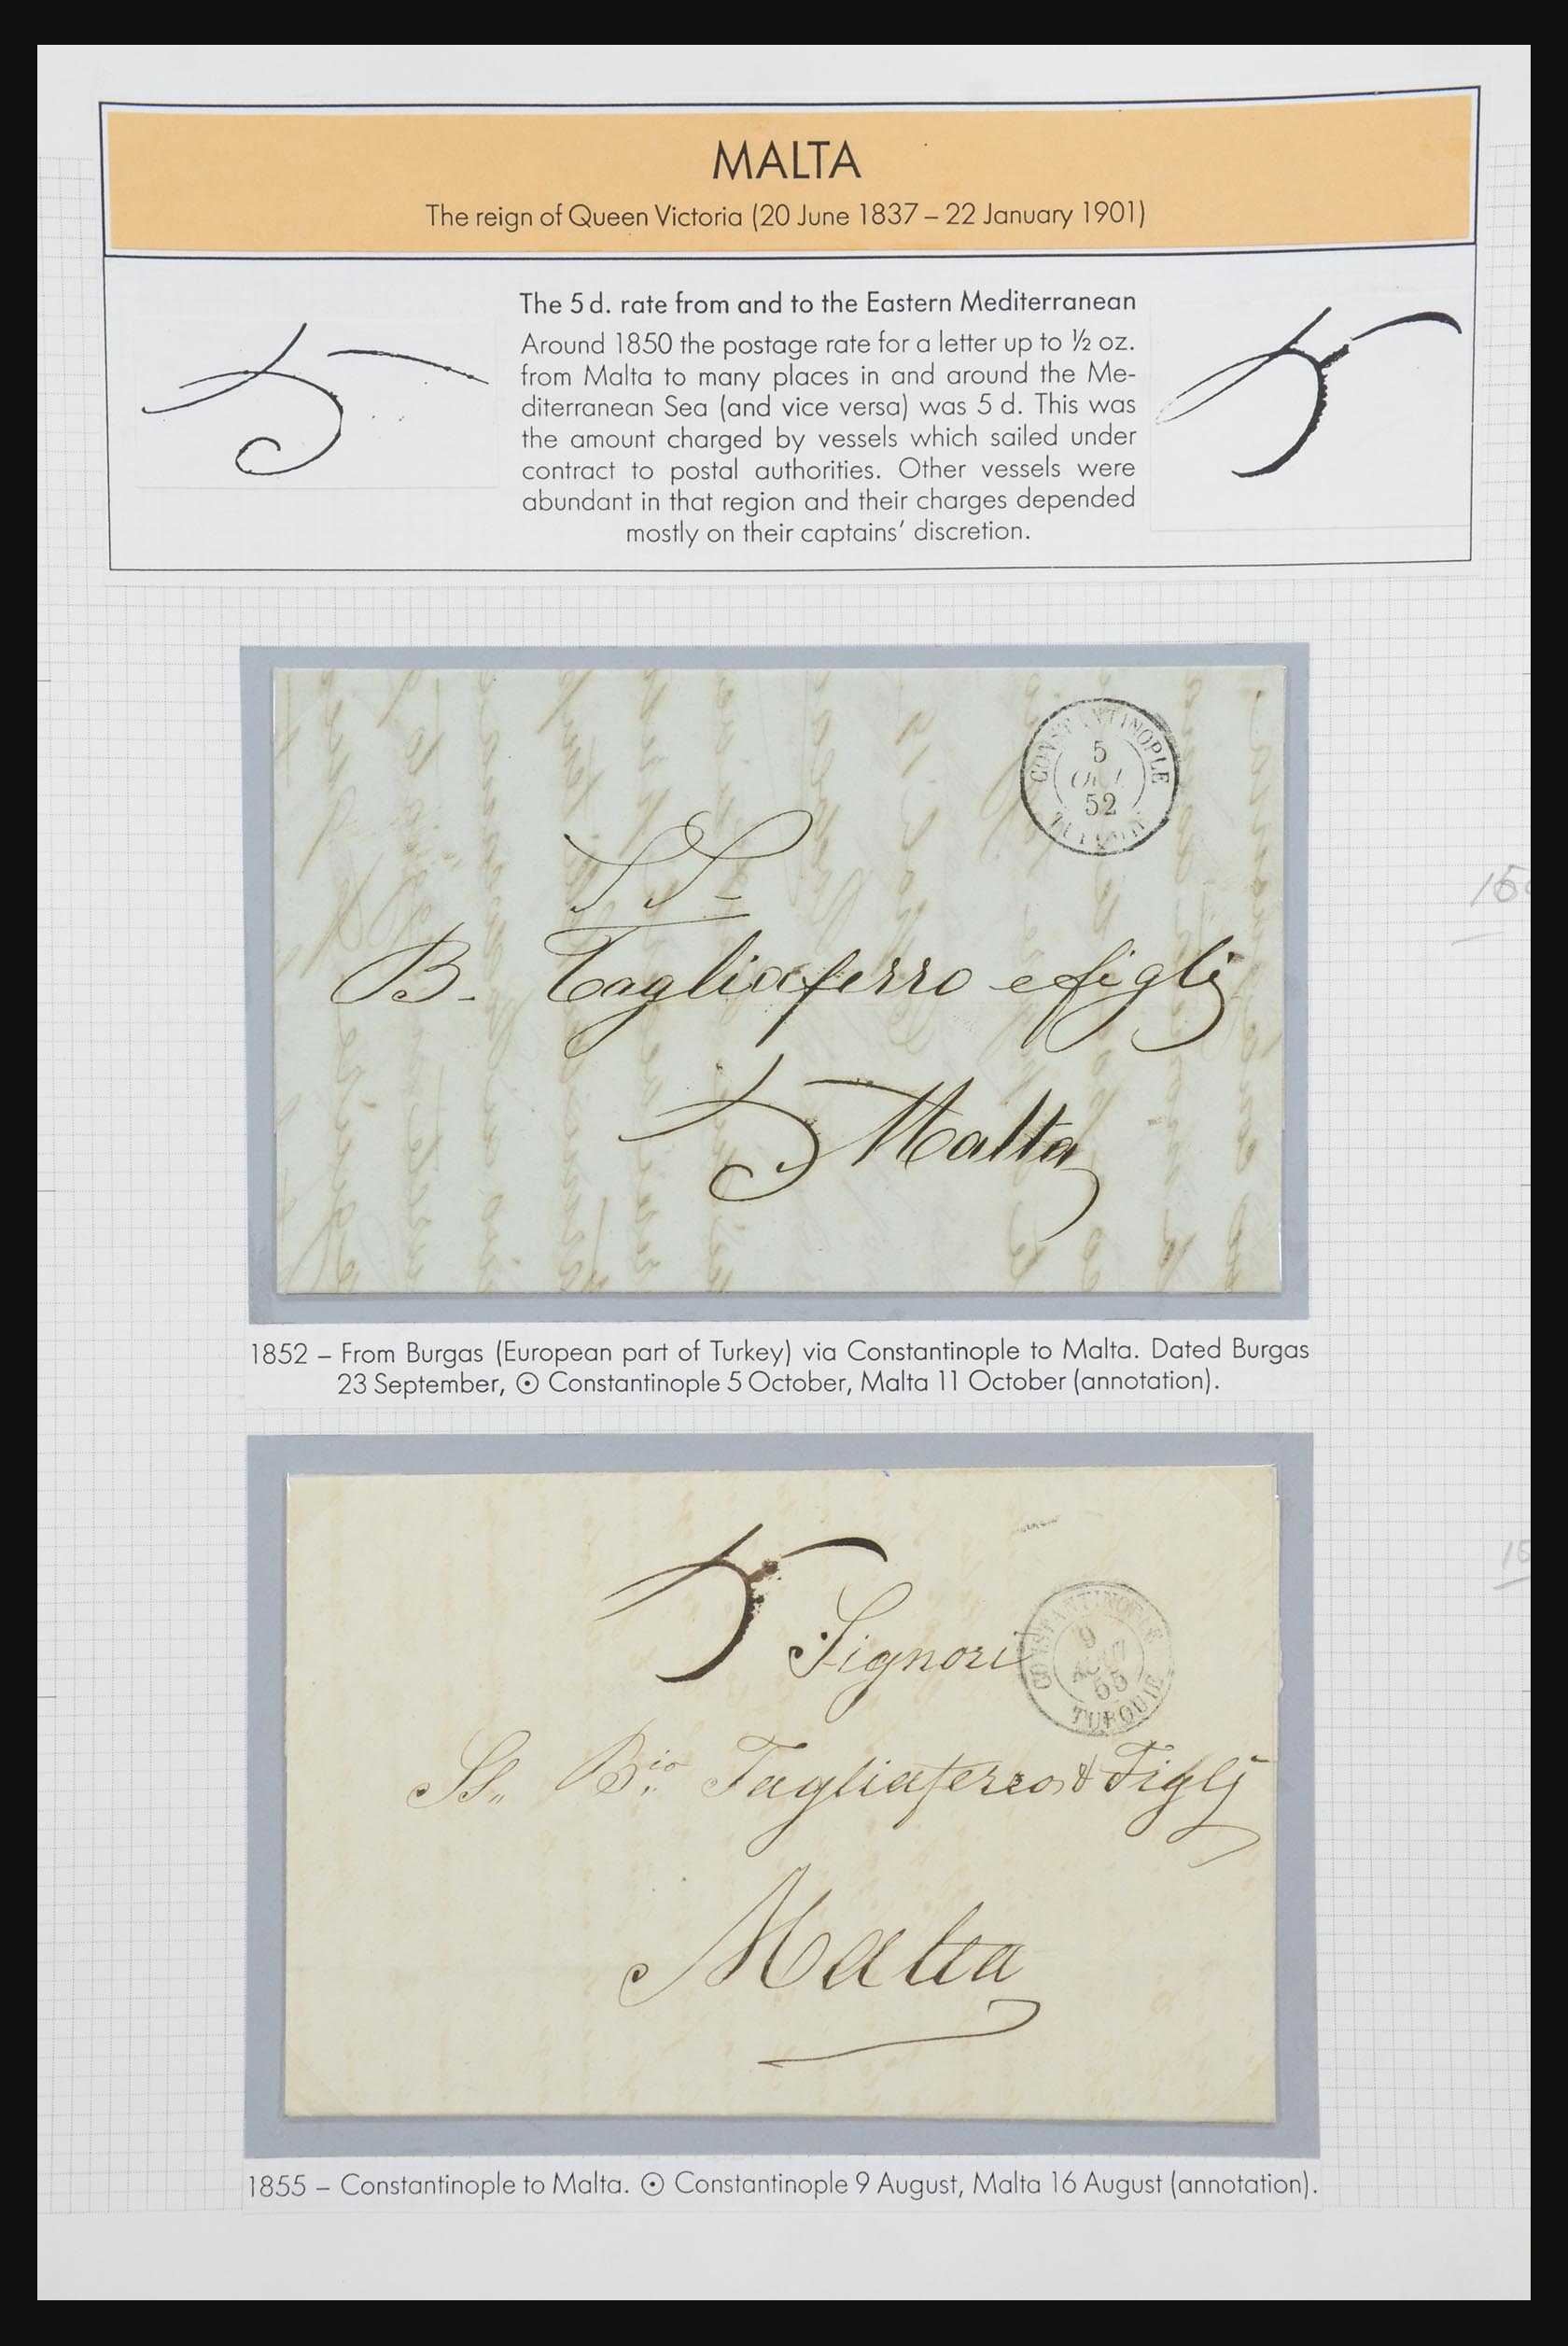 MALTA
The reign of Queen Victoria (20 June 1837 – 22 January 1901)
5
5
The 5 d. rate from and to the Eastern Mediterranean
Around 1850 the postage rate for a letter up to ½ oz.
from Malta to many places in and around the Me-
diterranean Sea (and vice versa) was 5 d. This was
the amount charged by vessels which sailed under
contract to postal authorities. Other vessels were
abundant in that region and their charges depended
mostly on their captains’ discretion.
CONSTANTINOPLE
5
52
B. Tagliaferro e figlj
5 Malta
1852 – From Burgas (European part of Turkey) via Constantinople to Malta. Dated Burgas
23 September, ⊙ Constantinople 5 October, Malta 11 October (annotation).
5
Signori
CONSTANTINOPLE
9
AOUT
55
TURQUIE
SS. B.io Tagliaferro & Figlj
Malta
1855 – Constantinople to Malta. ⊙ Constantinople 9 August, Malta 16 August (annotation).